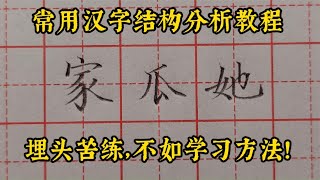 常用汉字结构分析教程
家瓜她
埋头苦练,不如学习方法!